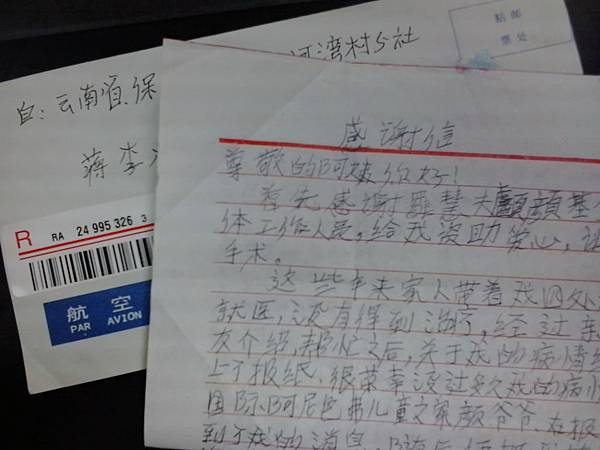 贴邮
票处
河湾村5社
自:云南省保
蒋李
R RA 24 995 326 3
航空
PAR AVION
感谢信
尊敬的阿姨你好!
首先感谢罗慧夫颅颜基
体工作人员,给我资助爱心,让
手术。
这些年来家人带着我四处
就医,没有得到治疗,经过亲
友介绍,帮忙之后,关于我的病情
上了报纸、很荣幸没过多久我的病
国际阿尼巴弗儿童之家颜爷爷、在报
到了我的消息